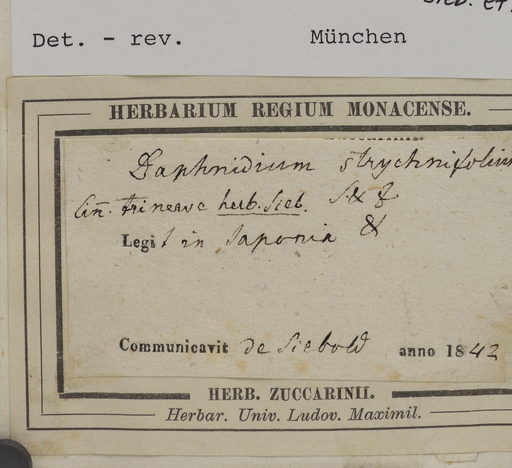 Det. - rev. München
HERBARIUM REGIUM MONACENSE.
Daphnidium strychnifolium
Cin. trinerve herb. Sieb. S & Z
Legit in Japonia
Communicavit de Siebold anno 1842
HERB. ZUCCARINII.
Herbar. Univ. Ludov. Maximil.